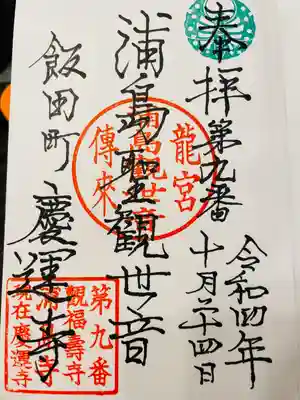 奉拝 第九番
令和四年
十月二十四日
浦島聖観世音
龍宮
浦島観世音
傳來
飯田町 慶運寺
第九番
観福壽寺
浦島寺
現在慶運寺